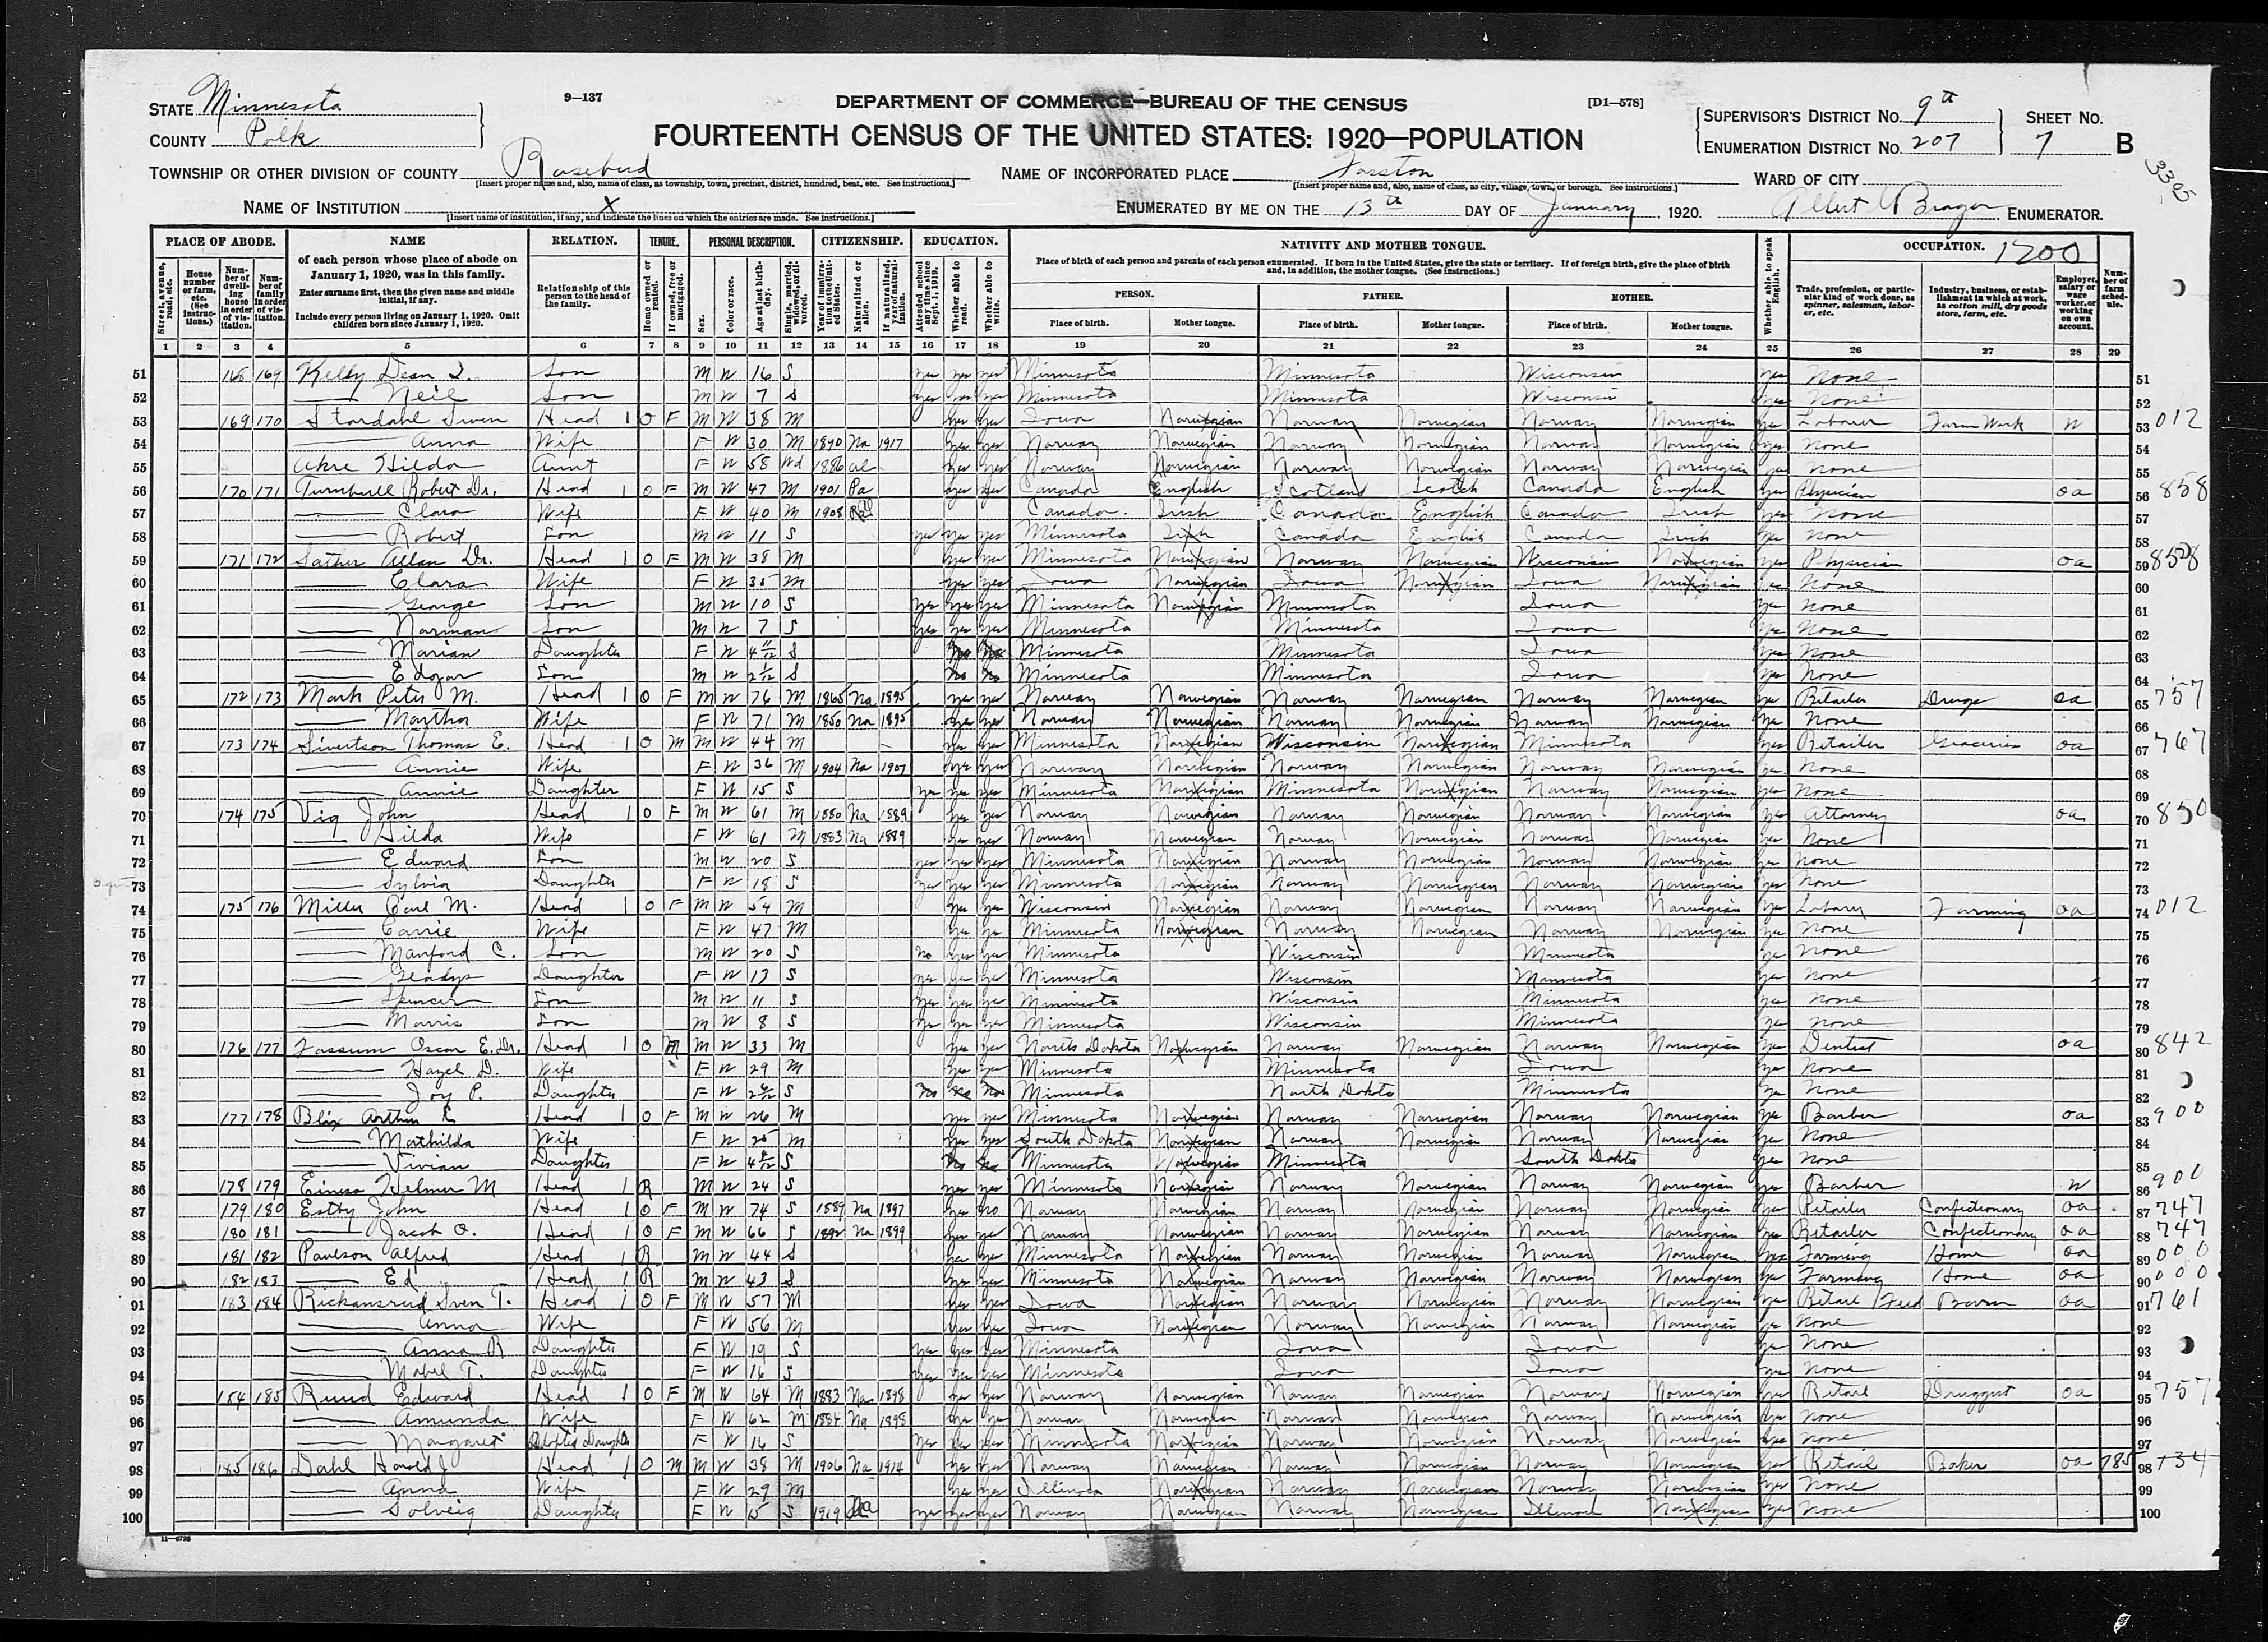 STATE Minnesota
COUNTY Polk
9—137
DEPARTMENT OF COMMERCE—BUREAU OF THE CENSUS
[D1—578]
FOURTEENTH CENSUS OF THE UNITED STATES: 1920—POPULATION
SUPERVISOR'S DISTRICT No. 9th
ENUMERATION DISTRICT No. 207
SHEET No. 7 B
TOWNSHIP OR OTHER DIVISION OF COUNTY Rosebud
[Insert proper name and, also, name of class, as township, town, precinct, district, hundred, beat, etc. See instructions.]
NAME OF INCORPORATED PLACE Fosston
[Insert proper name and, also, name of class, as city, village, town, or borough. See instructions.]
WARD OF CITY
NAME OF INSTITUTION X
[Insert name of institution, if any, and indicate the lines on which the entries are made. See instructions.]
ENUMERATED BY ME ON THE 13th DAY OF January, 1920. Albert Brager ENUMERATOR.
PLACE OF ABODE. NAME RELATION. TENURE. PERSONAL DESCRIPTION. CITIZENSHIP. EDUCATION. NATIVITY AND MOTHER TONGUE. OCCUPATION. 1700
1 2 3 4 5 6 7 8 9 10 11 12 13 14 15 16 17 18 19 20 21 22 23 24 25 26 27 28 29
51 168 169 Kelly Dean Son M W 16 S yes yes yes Minnesota Minnesota Wisconsin yes None 51
52 Neil Son M W 7 S yes yes Minnesota Minnesota Wisconsin yes None 52
53 169 170 Stordahl Swen Head 1 O F M W 38 M yes yes Iowa Norwegian Norway Norwegian Norway Norwegian yes Laborer Farm Work W 53 012
54 Anna Wife F W 30 M 1890 Na 1917 yes yes Norway Norwegian Norway Norwegian Norway Norwegian yes None 54
55 Akre Hilda Aunt F W 58 Wd 1886 al yes yes Norway Norwegian Norway Norwegian Norway Norwegian yes None 55
56 170 171 Turnbull Robert Dr. Head 1 O F M W 47 M 1901 Pa yes yes Canada English Scotland Scotch Canada English yes Physician oa 56 858
57 Clara Wife F W 40 M 1908 Canada Irish Canada English Canada Irish yes None 57
58 Robert Son M W 11 S yes yes yes Minnesota Irish Canada English Canada Irish yes None 58
59 171 172 Sather Allan Dr. Head 1 O F M W 38 M yes yes Minnesota Norwegian Norway Norwegian Wisconsin Norwegian yes Physician oa 59 858
60 Clara Wife F W 35 M yes yes Iowa Norwegian Iowa Norwegian Iowa Norwegian yes None 60
61 George Son M W 10 S yes yes yes Minnesota Norwegian Minnesota Iowa yes None 61
62 Norman Son M W 7 S yes yes yes Minnesota Minnesota Iowa yes None 62
63 Marian Daughter F W 4 11/12 S No No Minnesota Minnesota Iowa yes None 63
64 Edgar Son M W 2 1/12 S No No Minnesota Minnesota Iowa yes None 64
65 172 173 Mark Peter M. Head 1 O F M W 76 M 1865 Na 1895 yes yes Norway Norwegian Norway Norwegian Norway Norwegian yes Retailer Drugs oa 65 757
66 Martha Wife F W 71 M 1850 Na 1895 yes yes Norway Norwegian Norway Norwegian Norway Norwegian yes None 66
67 173 174 Sivertson Thomas E. Head 1 O M M W 44 M yes yes Minnesota Norwegian Wisconsin Norwegian Minnesota yes Retailer Groceries oa 67 767
68 Annie Wife F W 36 M 1904 Na 1907 yes yes Norway Norwegian Norway Norwegian Norway Norwegian yes None 68
69 Annie Daughter F W 15 S yes yes yes Minnesota Norwegian Minnesota Norwegian Norway Norwegian yes None 69
70 174 175 Vig John Head 1 O F M W 61 M 1880 Na 1889 yes yes Norway Norwegian Norway Norwegian Norway Norwegian yes Attorney oa 70 850
71 Hilda Wife F W 61 M 1883 Na 1889 yes yes Norway Norwegian Norway Norwegian Norway Norwegian yes None 71
72 Edward Son M W 20 S yes yes yes Minnesota Norwegian Norway Norwegian Norway Norwegian yes None 72
73 Sylvia Daughter F W 18 S yes yes yes Minnesota Norwegian Norway Norwegian Norway Norwegian yes None 73
74 175 176 Miller Carl M. Head 1 O F M W 54 M yes yes Wisconsin Norwegian Norway Norwegian Norway Norwegian yes Labory Farming oa 74 012
75 Carrie Wife F W 47 M yes yes Minnesota Norwegian Norway Norwegian Norway Norwegian yes None 75
76 Manford C. Son M W 20 S No yes yes Minnesota Wisconsin Minnesota yes None 76
77 Gladys Daughter F W 13 S yes yes yes Minnesota Wisconsin Minnesota yes None 77
78 Spencer Son M W 11 S yes yes yes Minnesota Wisconsin Minnesota yes None 78
79 Morris Son M W 8 S yes yes yes Minnesota Wisconsin Minnesota yes None 79
80 176 177 Fossum Oscar E. Dr. Head 1 O M M W 33 M yes yes North Dakota Norwegian Norway Norwegian Norway Norwegian yes Dentist oa 80 842
81 Hazel D. Wife F W 29 M yes yes Minnesota Minnesota Iowa yes None 81
82 Joy P. Daughter F W S No No No Minnesota North Dakota Minnesota yes None 82
83 177 178 Blix Arthur Head 1 O F M W 26 M yes yes Minnesota Norwegian Norway Norwegian Norway Norwegian yes Barber oa 83 900
84 Mathilda Wife F W 25 M yes yes South Dakota Norwegian Norway Norwegian Norway Norwegian yes None 84
85 Vivian Daughter F W S No No Minnesota Norwegian Minnesota South Dakota yes None 85
86 178 179 Helmer M Head 1 R M W 24 S yes yes Minnesota Norwegian Norway Norwegian Norway Norwegian yes Barber W 86 900
87 179 180 Estby John Head 1 O F M W 74 S 1889 Na 1897 yes no Norway Norwegian Norway Norwegian Norway Norwegian yes Retailer Confectionary oa 87 747
88 180 181 Jacob O. Head 1 O F M W 66 S 1892 Na 1899 yes yes Norway Norwegian Norway Norwegian Norway Norwegian yes Retailer Confectionary oa 88 747
89 181 182 Paulson Alfred Head 1 R M W 44 S yes yes Minnesota Norwegian Norway Norwegian Norway Norwegian yes Farming Home oa 89 000
90 182 183 Ed Head 1 R M W 43 S yes yes Minnesota Norwegian Norway Norwegian Norway Norwegian yes Farming Home oa 90 000
91 183 184 Rickansrud Sven T. Head 1 O F M W 57 M yes yes Iowa Norwegian Norway Norwegian Norway Norwegian yes Retail Feed Barn oa 91 761
92 Anna Wife F W 56 M yes yes Iowa Norwegian Norway Norwegian Norway Norwegian yes None 92
93 Anna R Daughter F W 19 S yes yes yes Minnesota Iowa Iowa yes None 93
94 Mabel T. Daughter F W 16 S yes yes yes Minnesota Iowa Iowa yes None 94
95 184 185 Ruud Edward Head 1 O F M W 64 M 1883 Na 1898 yes yes Norway Norwegian Norway Norwegian Norway Norwegian yes Retail Druggist oa 95 757
96 Amunda Wife F W 62 M 1884 Na 1898 yes yes Norway Norwegian Norway Norwegian Norway Norwegian yes None 96
97 Margaret Adopted Daughter F W 16 S yes yes yes Minnesota Norwegian Norway Norwegian Norway Norwegian yes None 97
98 185 186 Dahl Harold J. Head 1 O M M W 38 M 1906 Na 1914 yes yes Norway Norwegian Norway Norwegian Norway Norwegian yes Retail Baker oa 785 98 134
99 Anna Wife F W 29 M yes yes Illinois Norwegian Norway Norwegian Norway Norwegian yes None 99
100 Solveig Daughter F W 15 S 1919 Na yes yes yes Norway Norwegian Norway Norwegian Illinois Norwegian yes None 100
11—6726